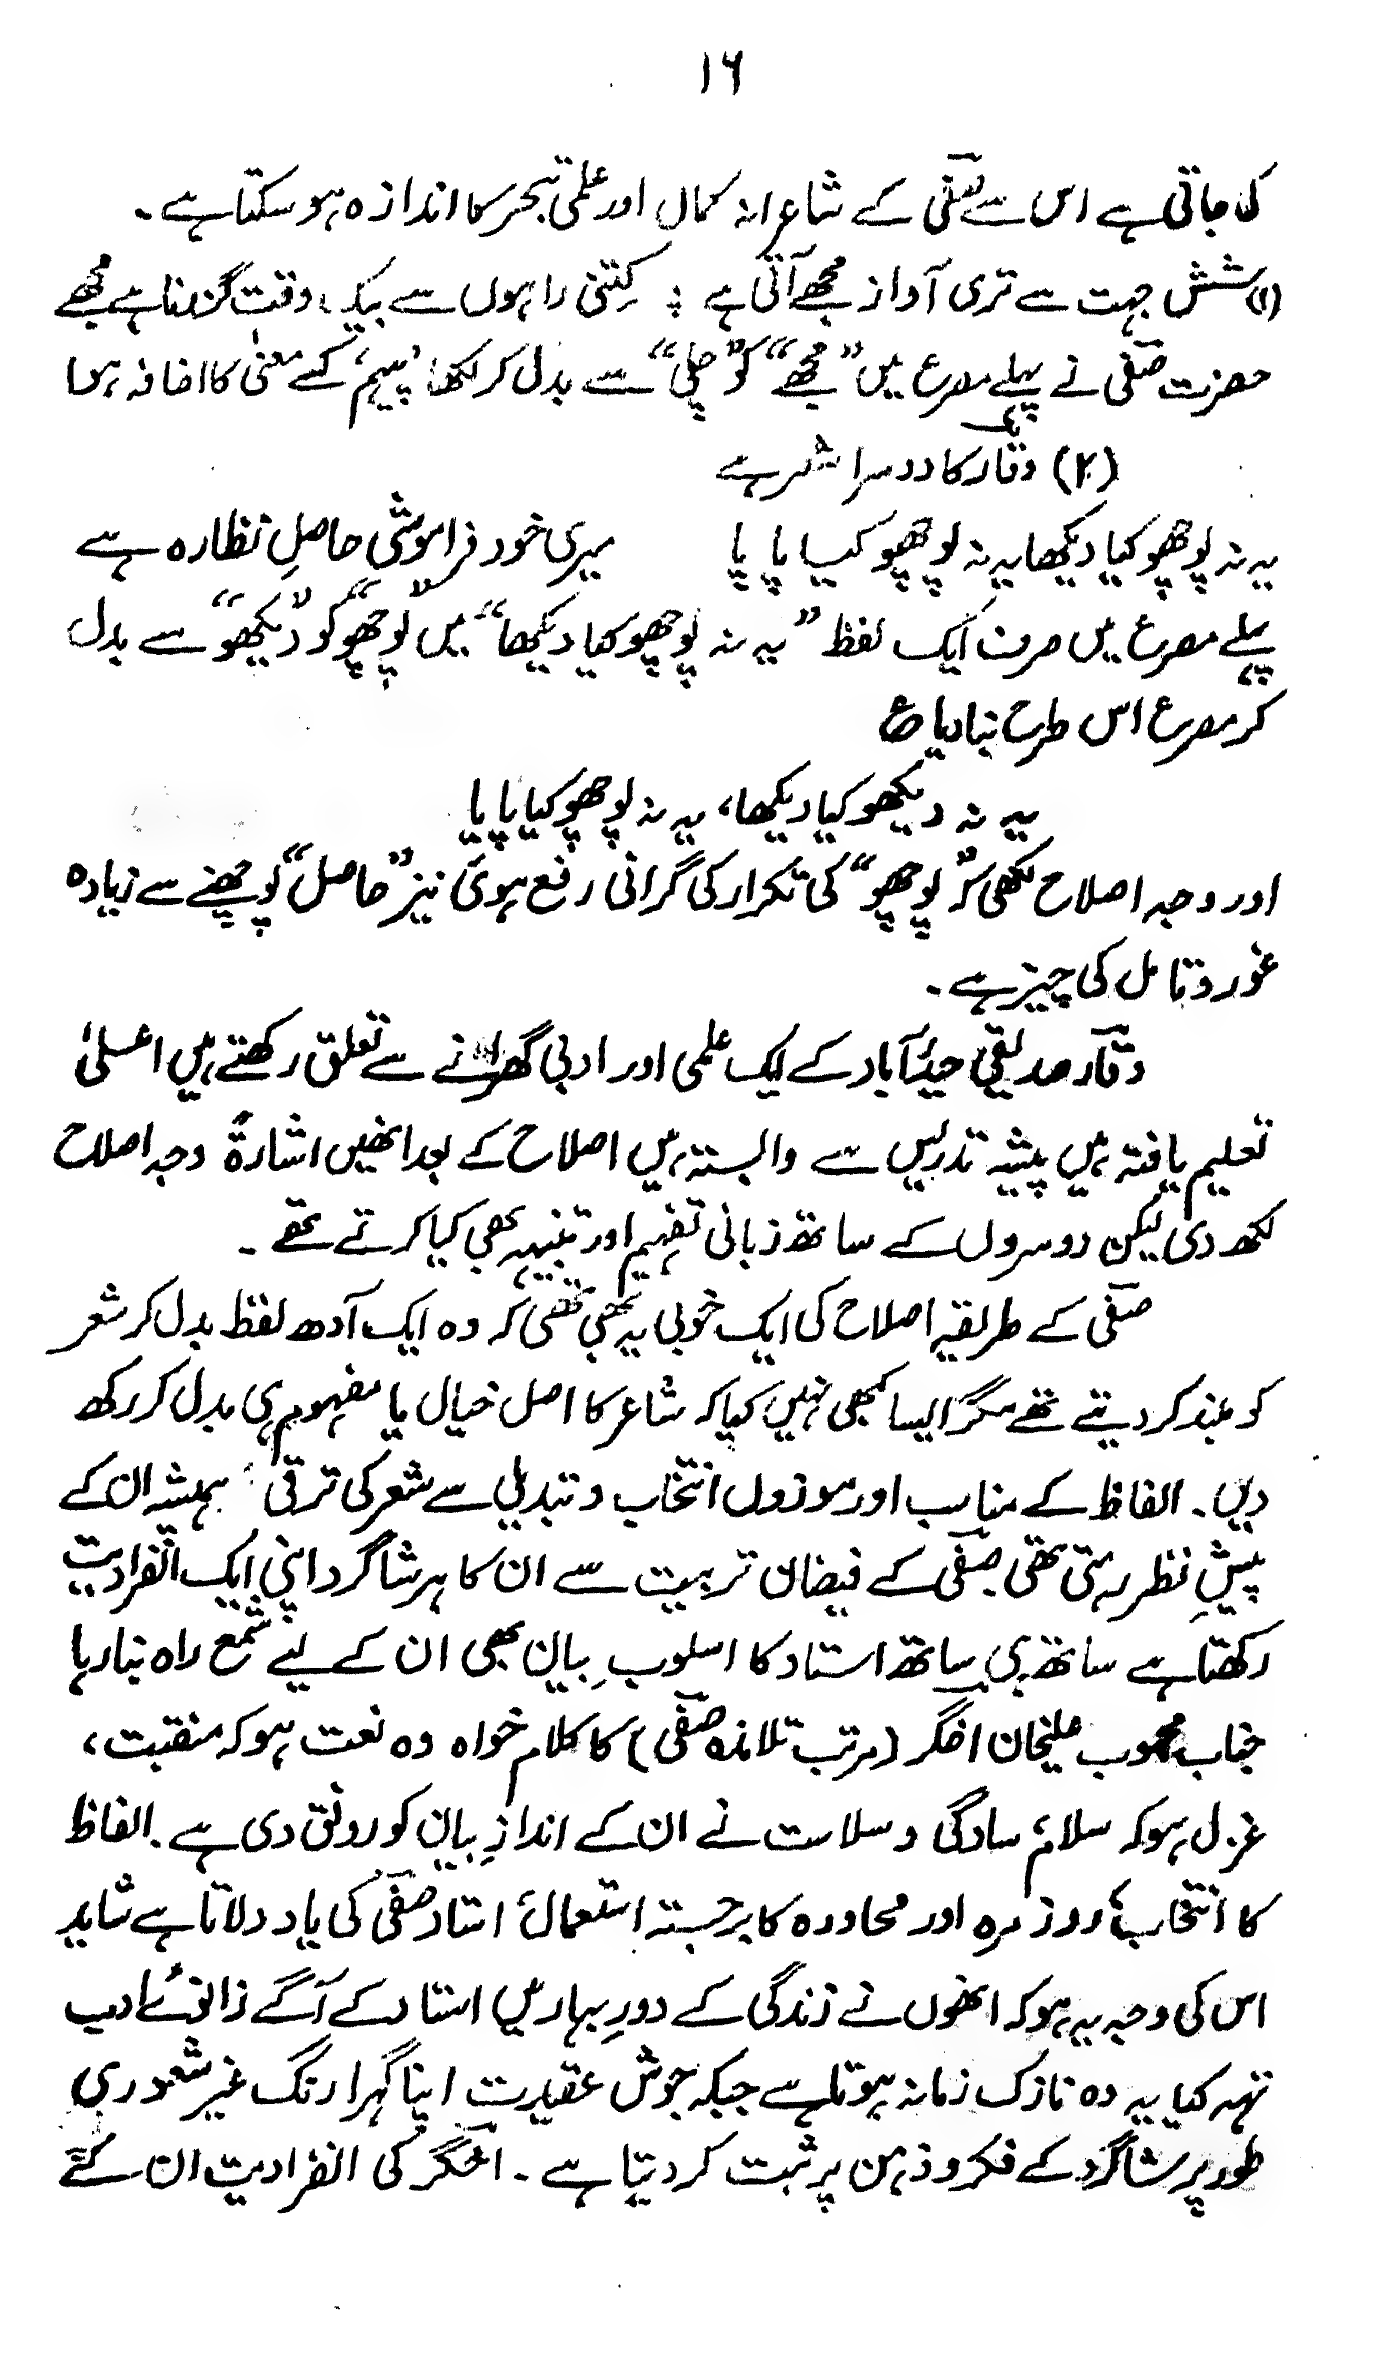 ۱۶
کی جاتی ہے اس سے صفی کے شاعرانہ کمال اور علمی تبحر کا اندازہ ہو سکتا ہے۔
(۱) شش جہت سے تری آواز مجھے آتی ہے ؛ کتنی راہوں سے بیک وقت گزرنا ہے مجھے
حضرت صفی نے پہلے مصرع میں ”مجھے“ کو ”چلی“ سے بدل کر لکھا ’پیہم‘ کے معنیٰ کا اضافہ ہوا
(۲) وقار کا دوسرا شعر ہے
یہ نہ پوچھو کیا دیکھا یہ نہ پوچھو کیا پا پا یا میری خود فراموشی حاصلِ نظارہ ہے
پہلے مصرع میں صرف ایک لفظ ”یہ نہ پوچھو کیا دیکھا“ میں ”پوچھو“ کو ”دیکھو“ سے بدل
کر مصرع اس طرح بنا دیا ع
یہ نہ دیکھو کیا دیکھا، یہ نہ پوچھو کیا پا پا یا
اور وجہ اصلاح لکھی کہ ”پوچھو“ کی تکرار کی گرانی رفع ہوئی نیز ”حاصل“ پوچھنے سے زیادہ
غور و تامل کی چیز ہے۔
وقار صدیقی حیدرآباد کے ایک علمی اور ادبی گھرانے سے تعلق رکھتے ہیں اعلیٰ
تعلیم یافتہ ہیں پیشہ تدریس سے وابستہ ہیں اصلاح کے بعد انھیں اشارۃً وجہ اصلاح
لکھ دی لیکن دوسروں کے ساتھ زبانی تفہیم اور تنبیہہ بھی کیا کرتے تھے۔
صفی کے طریقہ اصلاح کی ایک خوبی یہ بھی تھی کہ وہ ایک آدھ لفظ بدل کر شعر
کو بلند کر دیتے تھے مگر ایسا کبھی نہیں کیا کہ شاعر کا اصل خیال یا مفہوم ہی بدل کر رکھ
دیں۔ الفاظ کے مناسب اور موزوں انتخاب و تبدیلی سے شعر کی ترقی ہمیشہ ان کے
پیشِ نظر رہتی تھی صفی کے فیضان تربیت سے ان کا ہر شاگرد اپنی ایک انفرادیت
رکھتا ہے ساتھ ہی ساتھ استاد کا اسلوبِ بیان بھی ان کے لیے شمع راہ بنا رہا
جناب محبوب علیخان اخگر (مرتب تلامذہ صفی) کا کلام خواہ وہ نعت ہو کہ منقبت،
غزل ہو کہ سلام، سادگی و سلاست نے ان کے اندازِ بیان کو رونق دی ہے۔ الفاظ
کا انتخاب، روزمرہ اور محاورہ کا برجستہ استعمال، استاد صفی کی یاد دلاتا ہے شاید
اس کی وجہ یہ ہو کہ انھوں نے زندگی کے دورِ بہار میں استاد کے آگے زانوئے ادب
تہہ کیا یہ وہ نازک زمانہ ہوتا ہے جبکہ جوش عقیدت اپنا گہرا رنگ غیر شعوری
طور پر شاگرد کے فکر و ذہن پر ثبت کر دیتا ہے۔ اخگر کی انفرادیت ان کے